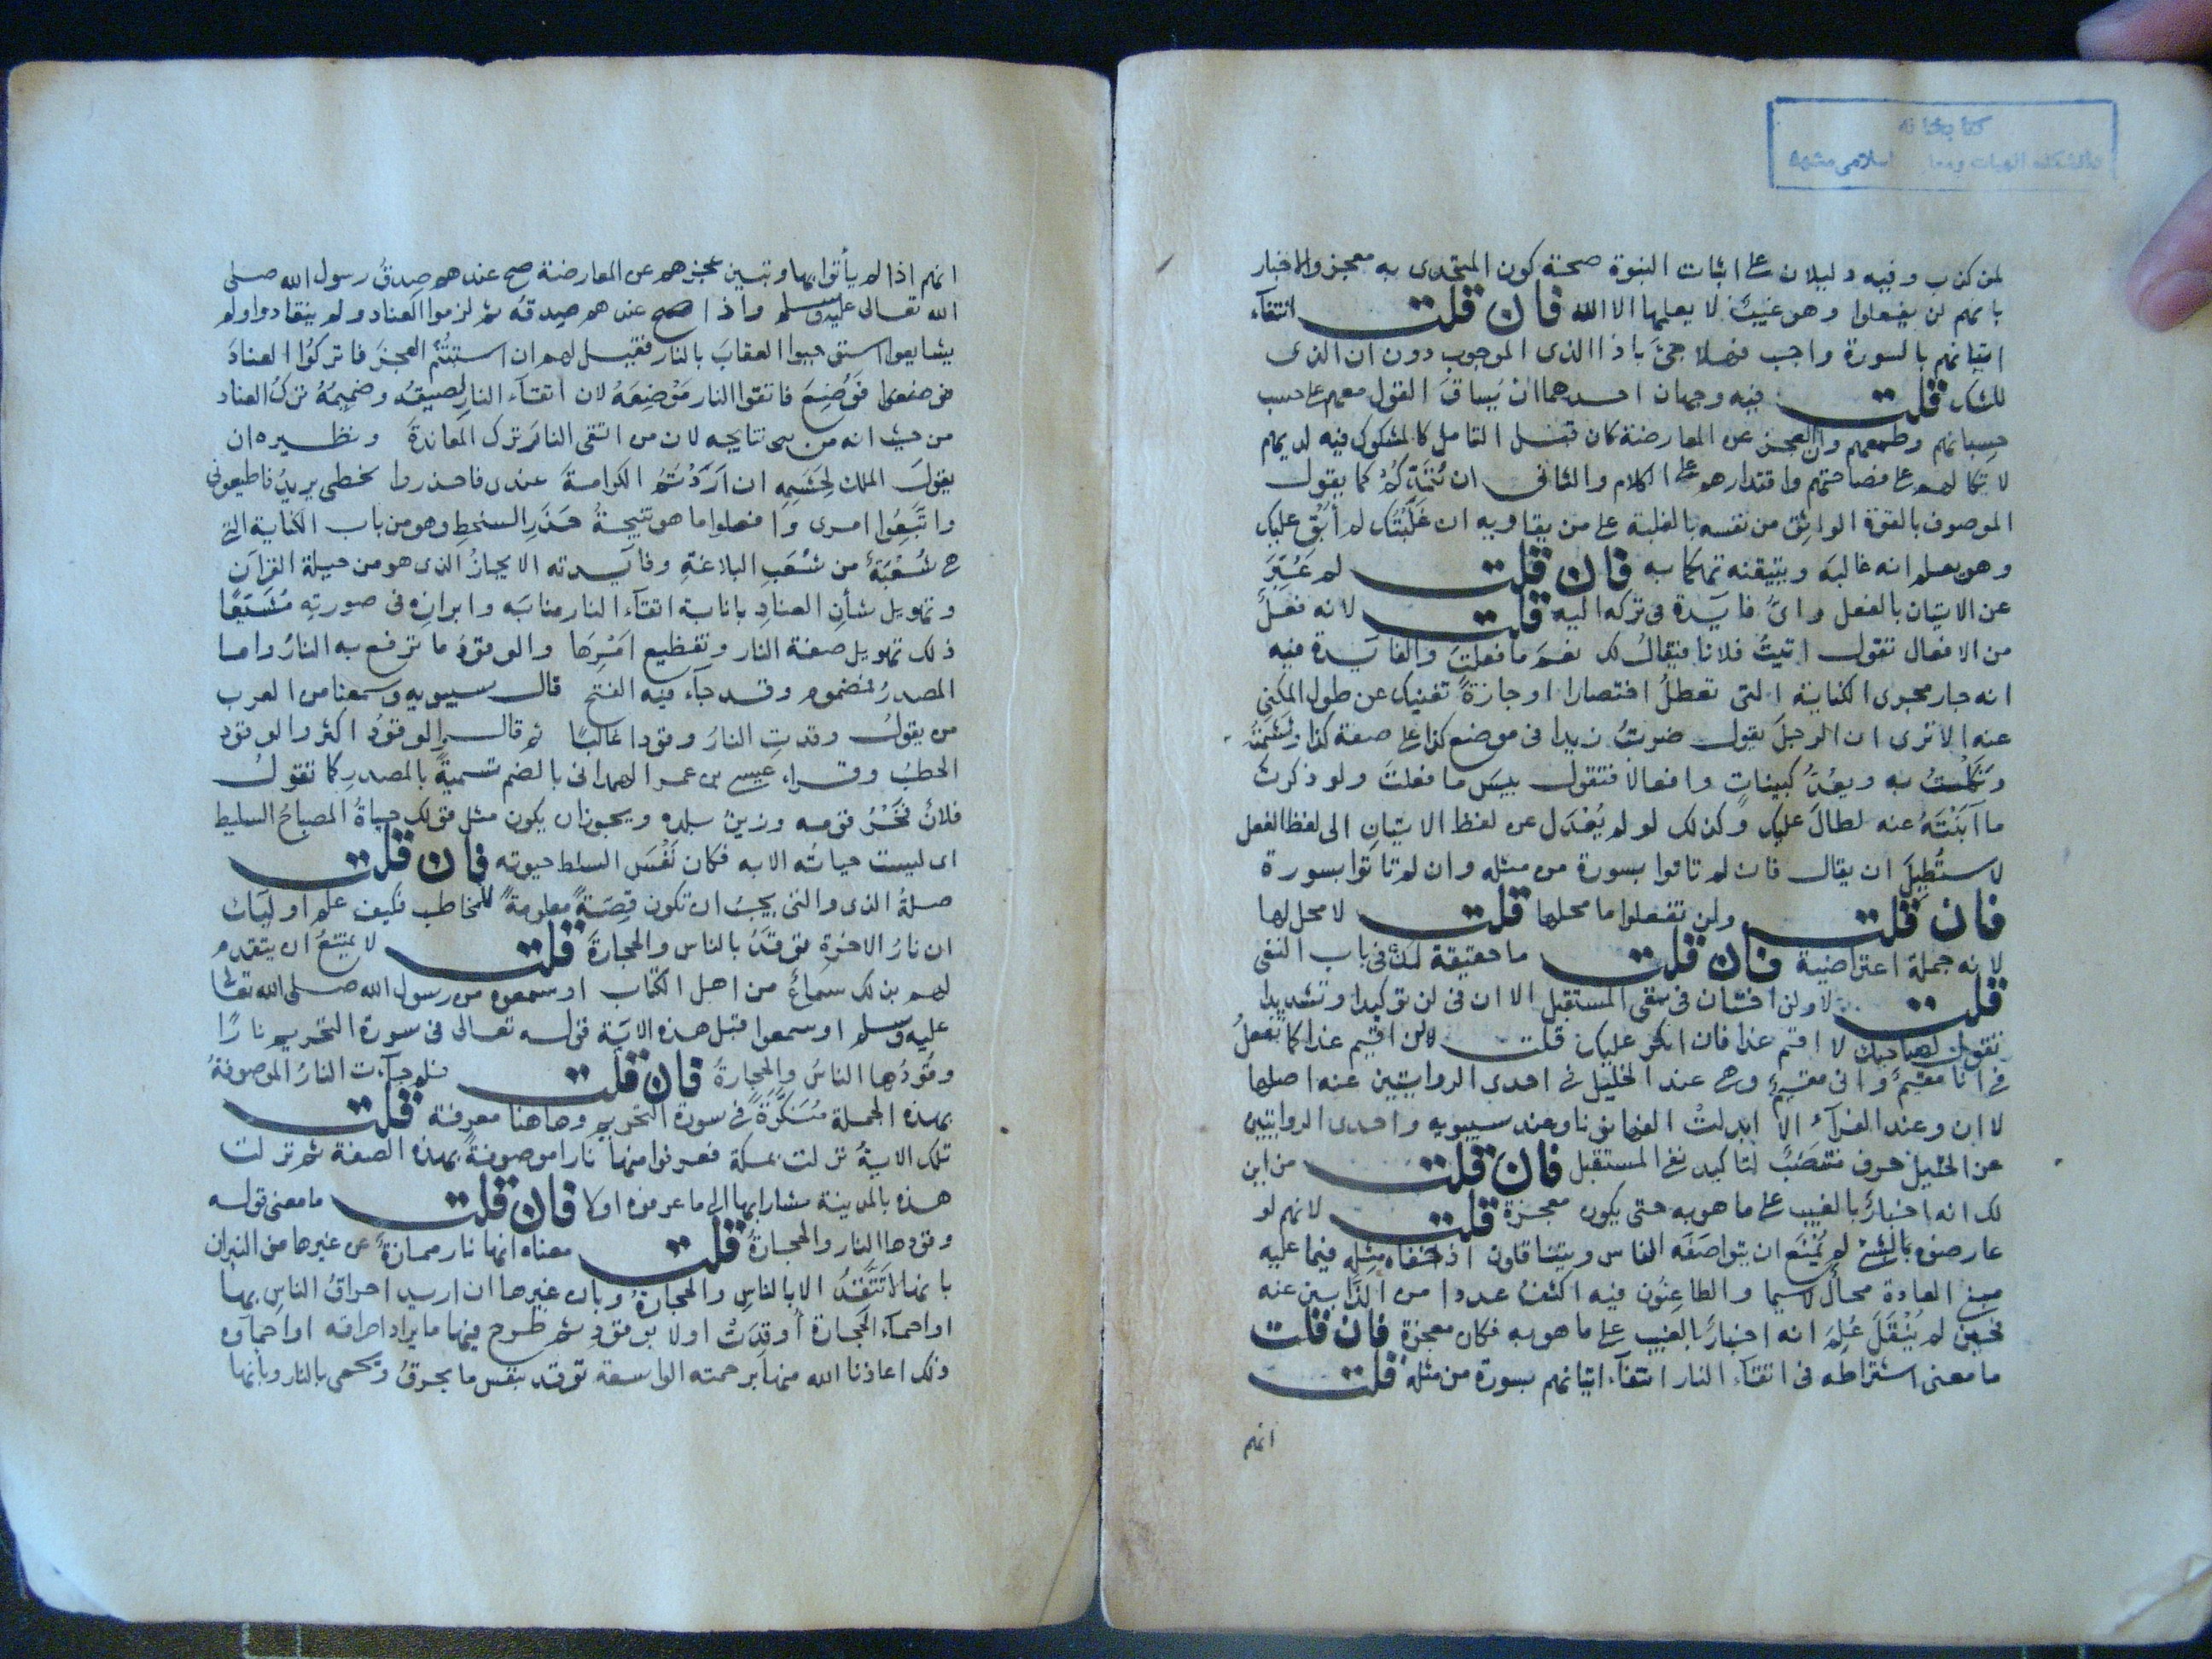 كتابخانه
دانشكده الهيات ومعا اسلامى مشهد
لمن كذب وفيه دليلان على اثبات النبوة صحة كون المتحدى به معجز والاخبار
بانهم لن يفعلوا وهو غيب لا يعلمها الا الله فان قلت انتفآء
اتيانهم بالسورة واجب فهلا جئ باذا الذى للوجوب دون ان الذى
للشك قلت فيه وجهان احدهما ان يساق القول معهم على حسب
حسبانهم وطمعهم وان العجز عن المعارضة كان قبل التامل كالمشكوك فيه لديهم
لاتكالهم على فصاحتهم واقتدارهم على الكلام والثانى ان يتهكم كما يقول
الموصوف بالقوة الواثق من نفسه بالغلبة على من يقاويه ان غلبتك لم أبق عليك
وهو يعلم انه غالبه ويتيقنه تهكما به فان قلت لم عبّر
عن الاتيان بالفعل واىّ فايدة فى تركه اليه قلت لانه فعل
من الافعال تقول اتيت فلانا فيقال لك نعم ما فعلت والفايدة فيه
انه جار مجرى الكناية التى تعطل اختصارا او جازة تغنيك عن طول المكنى
عنه الا ترى ان الرجل يقول ضربت زيدا فى موضع كذا على صفة كذا وشتمته
ونكلت به ويعدّ كبينات وافعالا فتقول بيس ما فعلت ولو ذكرت
ما أبنته عنه لطال عليك وكذلك لو لم يعدل عن لفظ الاتيان الى لفظ الفعل
لاستطيل ان يقال فان لم تاتوا بسورة من مثله وان لم تاتوا بسورة
فان قلت ولن تفعلوا ما محلها قلت لا محل لها
لانه جملة اعتراضية فان قلت ما حقيقة لن فى باب النفى
قلت لا ولن اختان فى نفى المستقبل الا ان فى لن توكيدا وتشديدا
تقول لصاحبك لا اقيم غدا فان انكر عليك قلت لن اقيم غدا كما تفعل
فى انا مقيم وانى مقيم وهى عند الخليل فى احدى الروايتين عنه اصلها
لا ان وعند الفرآء لا ابدلت الفها نونا وعند سيبويه واحدى الروايتين
عن الخليل حرف مقتضب لتاكيد نفى المستقبل فان قلت من اين
لك انه اخبار بالغيب على ما هو به حتى يكون معجزة قلت لانهم لو
عارضوه بالشئ لم يمتنع ان يتواصفه الناس ويتناقلون اذ خفاء مثله فيما عليه
مبنى العادة محال لا سيما والطاعنون فيه اكثف عددا من الذابين عنه
فحين لم ينقل علم انه اخبار بالغيب على ما هو به فكان معجزة فان قلت
ما معنى اشتراطه فى اتقآء النار انتفآء اتيانهم بسورة من مثله قلت
انهم
انهم اذا لم يأتوا بها وتبين عجزهم عن المعارضة صح عندهم صدق رسول الله صلى
الله تعالى عليه وسلم واذا صح عندهم صدقه ثم لزموا العناد ولم ينقادوا ولم
يشايعوا استوجبوا العقاب بالنار فقيل لهم ان استبنتم العجز فاتركوا العناد
فوضع فاتقوا النار موضعه لان اتقآء النار لصيقه وضميمه ترك العناد
من حيث انه من نتايجه لان من اتقى النار ترك المعاندة ونظيره ان
يقول الملك لحشمه ان اردتم الكرامة عندى فاحذروا سخطى يريد فاطيعونى
واتبعوا امرى وافعلوا ما هو نتيجة حذر السخط وهو من باب الكناية التى
هى شعبة من شعب البلاغة وفآيدته الايجاز الذى هو من حيلة القرآن
وتهويل شأن العناد بانابة اتقآء النار منابه وابرازه فى صورته مشبعا
ذلك تهويل صفة النار وتفظيع امرها والوقود ما ترفع به النار واما
المصدر فمضموم وقد جآء فيه الفتح قال سيبويه وسمعنا من العرب
من يقول وقدت النار وقودا غالبا ثم قال والوقود اكثر والوقود
الحطب وقراء عيسى بن عمر الهمدانى بالضم تسمية بالمصدر كما تقول
فلان فخر قومه وزين بلده ويجوز ان يكون مثل قولك حياة المصباح السليط
اى ليست حياته الا به فكان نفس السلط حيوته فان قلت
صلة الذى والتى يجب ان تكون قصة معلومة للمخاطب فكيف علم اوليآك
ان نار الاخرة توقد بالناس والحجارة قلت لا يمتنع ان يتقدم
لهم بذلك سماع من اهل الكتاب او سمعوه من رسول الله صلى الله تعالى
عليه وسلم او سمعوا قبل هذه الاية قوله تعالى فى سورة التحريم نارًا
وقودها الناس والحجارة فان قلت فلم جآءت النار الموصوفة
بهذه الجملة منكرة فى سورة التحريم وهاهنا معرفة قلت
تلك الاية نزلت بمكة فعرفوا منها نارا موصوفة بهذه الصفة ثم نزلت
هذه بالمدينة مشارا بها الى ما عرفوه اولا فان قلت ما معنى قوله
وقودها النار والحجارة قلت معناه انها نار ممازة عن غيرها من النيران
بانها لا تتّقد الا بالناس والحجارة وبان غيرها ان اريد احراق الناس بها
او احمآء الحجارة أوقدت اولا بوقود ثم طرح فيها ما يراد احراقه او احمآوه
وتلك اعاذنا الله منها برحمته الواسعة توقد بنفس ما يحرق ويحمى بالنار وبانها